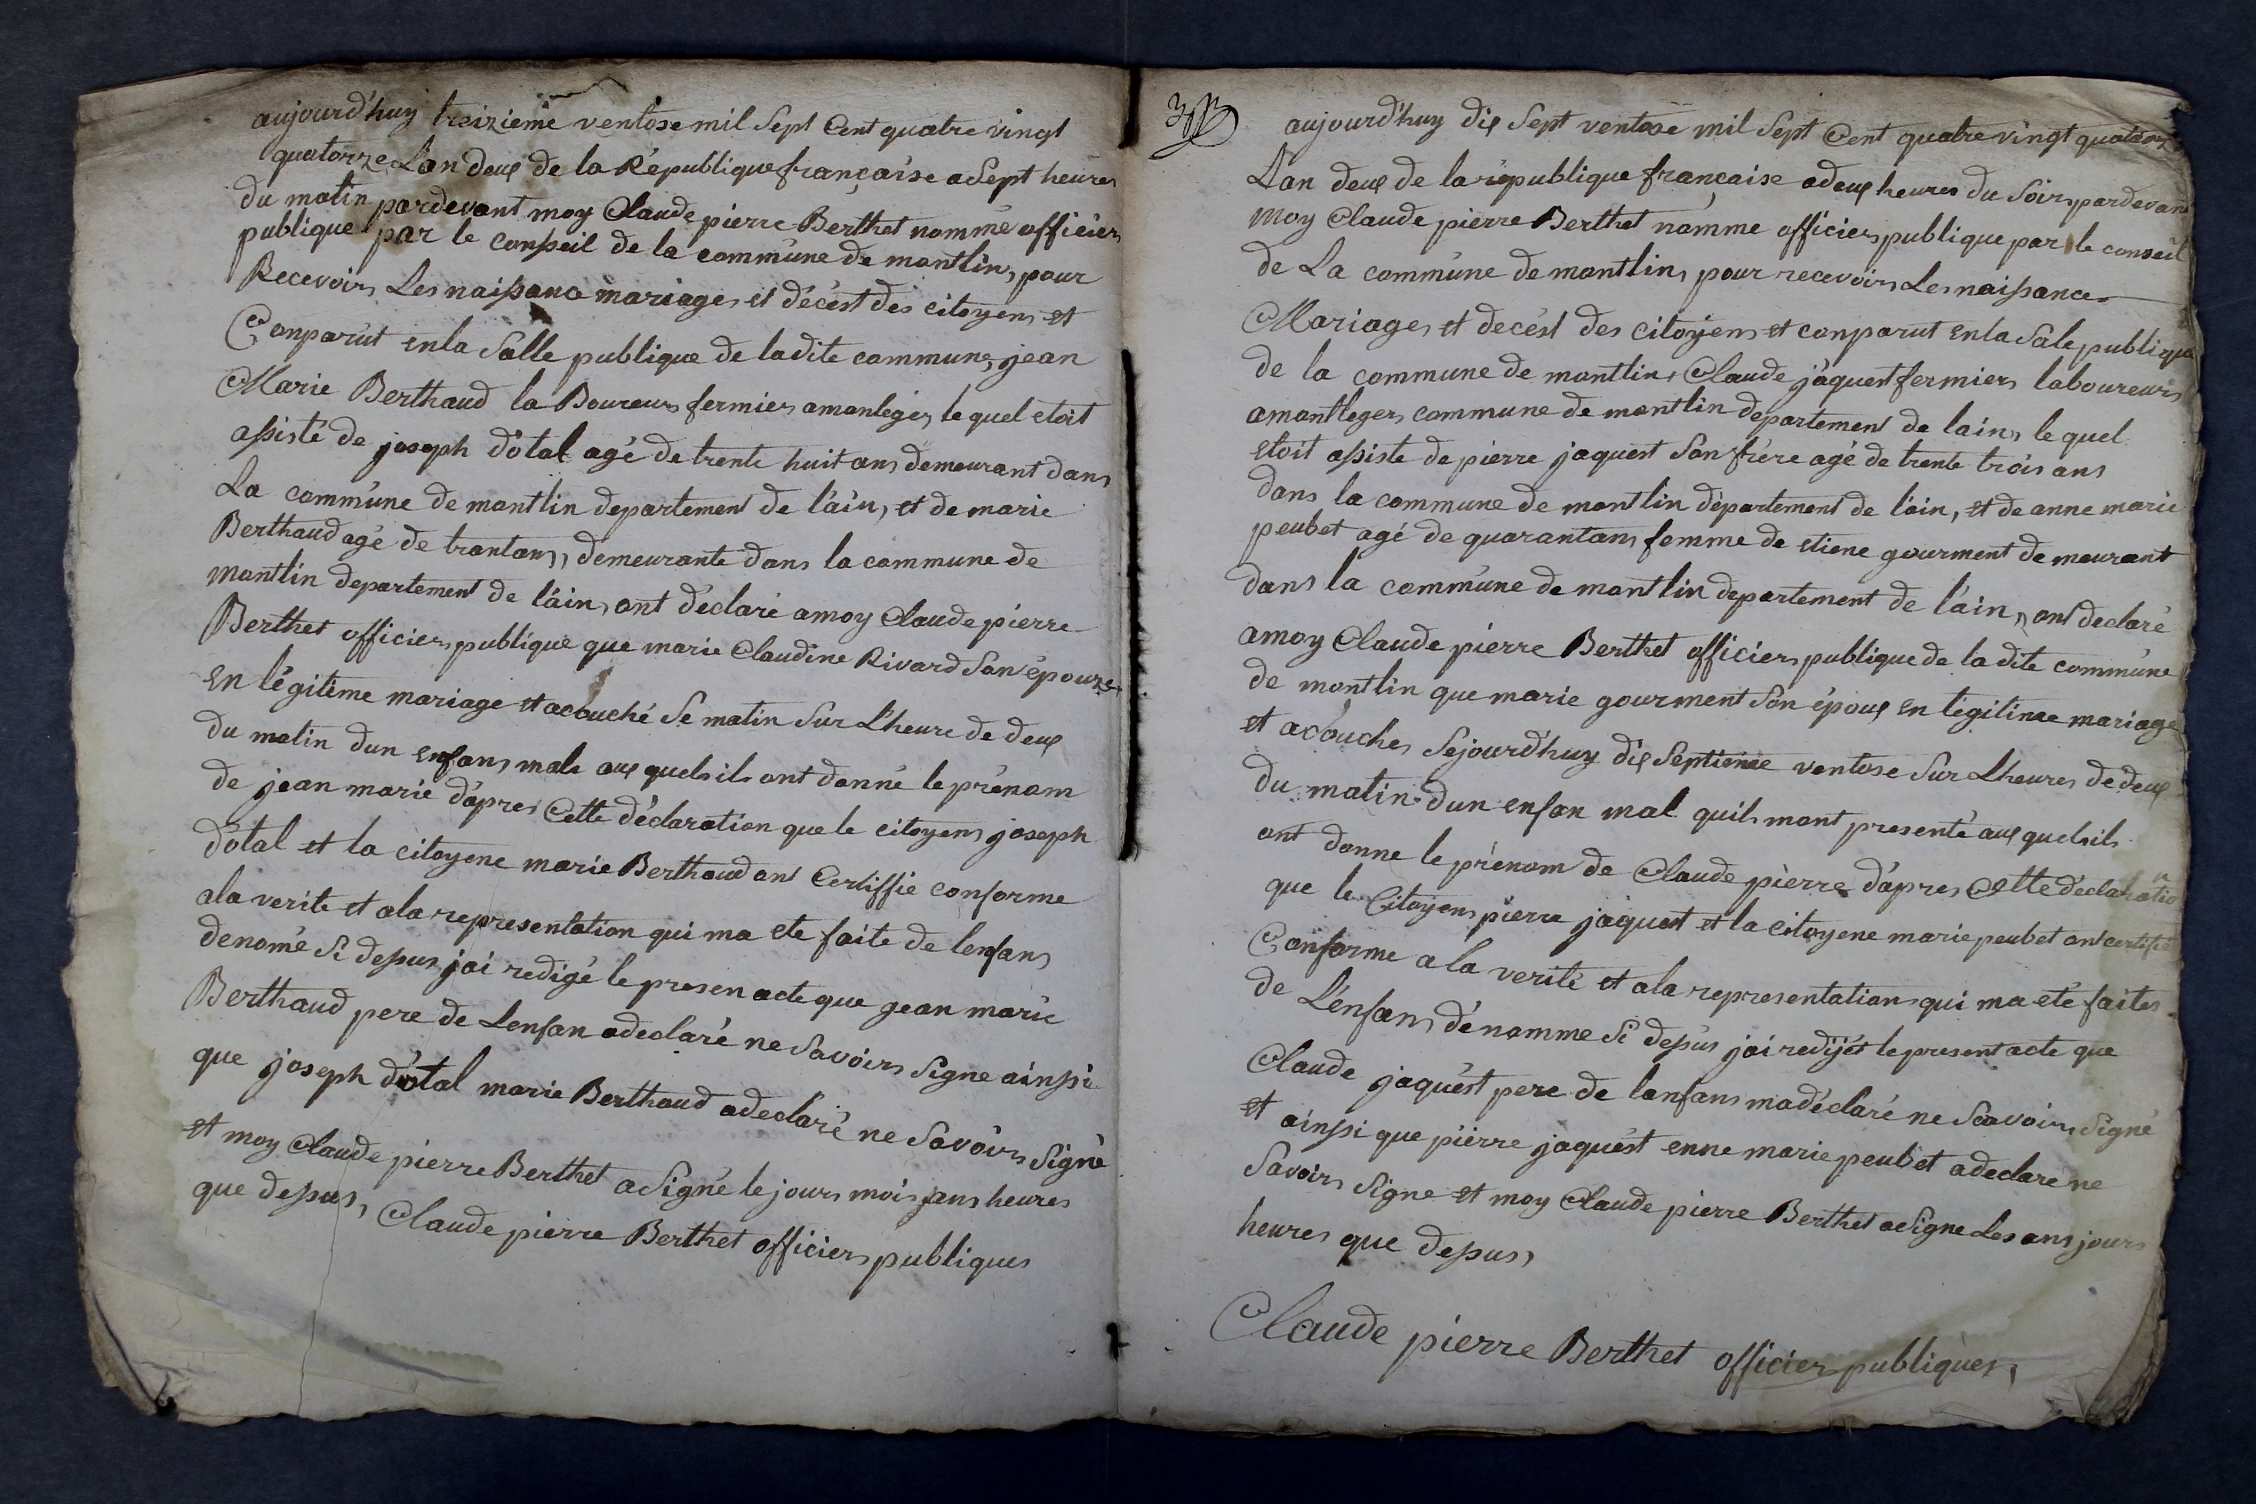 aujourd'huy treizieme ventose mil sept Cent quatre vingt
quatorze L'an deux de la République française a sept heures
du matin pardevant moy Claude pierre Berthet nommé officiers
publique par le conseil de la commúne de montlin, pour
Recevoirs Les naissance mariages et décèst des citoyens et
Conparut en la Salle publique de ladite commune, jean
Marie Berthaud la Boureurs fermiers a monleger, le quel etoit
assisté de joseph dótal agé de trente huit ans demeurant dans
La commúne de montlin departement de láin, et de marie
Berthaud agé de trantans, demeurante dans la commune de
montlin departement de láin, ont déclaré a moy Claude pierre
Berthet officiers publique que marie Claudine Rivard Son épouze
en légitème mariage et acouché Se matin Sur L'heure de deux
du matin dun enfans male aux quels ils ont donné le prénom
de jean marie dápres Cette déclaration que le citoyens joseph
dótal et la citoyene marie Berthaud ont Certiffie conforme
a la verite et a la representation qui ma ete faite de lenfans
denomé Si dessus jai redigé le presen acte que jean marie
Berthaud pere de Lenfan a declaré ne Savoirs Signe ainssi
que joseph dótal marie Berthaud a declaré ne Savoirs Signé
et moy Claude pierre Berthet a Signé le jours mois jans heures
que dessus, Claude pierre Berthet officiers publiques
aujourd'huy dix Sept ventose mil Sept Cent quatre vingt quatorz
L'an deux de la république française a deux heures du Soirs pardevant
moy Claude pierre Berthet nommé officiers publique par le conseil
de La commúne de montlin, pour recevoirs Les naissance
Mariages et decèst des citoyens et conparut en la Sale publique
de la commune de montlin, Claude jáquest fermiers laboureurs
a montleger, commune de montlin departement de lain, le quel
etoit assiste de pierre jaquest Son frére agé de trente trois ans
dans la commune de montlin département de láin, et de anne marie
peubet agé de quarantans femme de etiene gourment demeurant
dans la commúne de montlin departement de láin, ont declaré
a moy Claude pierre Berthet officiers publique de la dite commúne
de montlin que marie gourment Son époux en legitime mariage
et acoucher Sejourd'huy dix Septieme ventose Sur Lheures de deux
du matin dun enfan mal quils mont presenté aux quels ils
ont donne le prénom de Claude pièrre dápres Cette déclaration
que le Citoyens pierre jaquest et la citoyene marie peubet ont certifié
Conforme a la verité et a la representation qui ma eté faites
de L'enfans dénomme Si dessus jai redijét le present acte que
Claude jaquést pere de lanfans ma déclaré ne Scavoirs Signé
et ainssi que pièrre jaquést enne marie peubet a declare ne
Savoirs Signe et moy Claude pierre Berthet a Signe Les ans jours
heures que dessus,
Claude pierre Berthet officiers publiques,